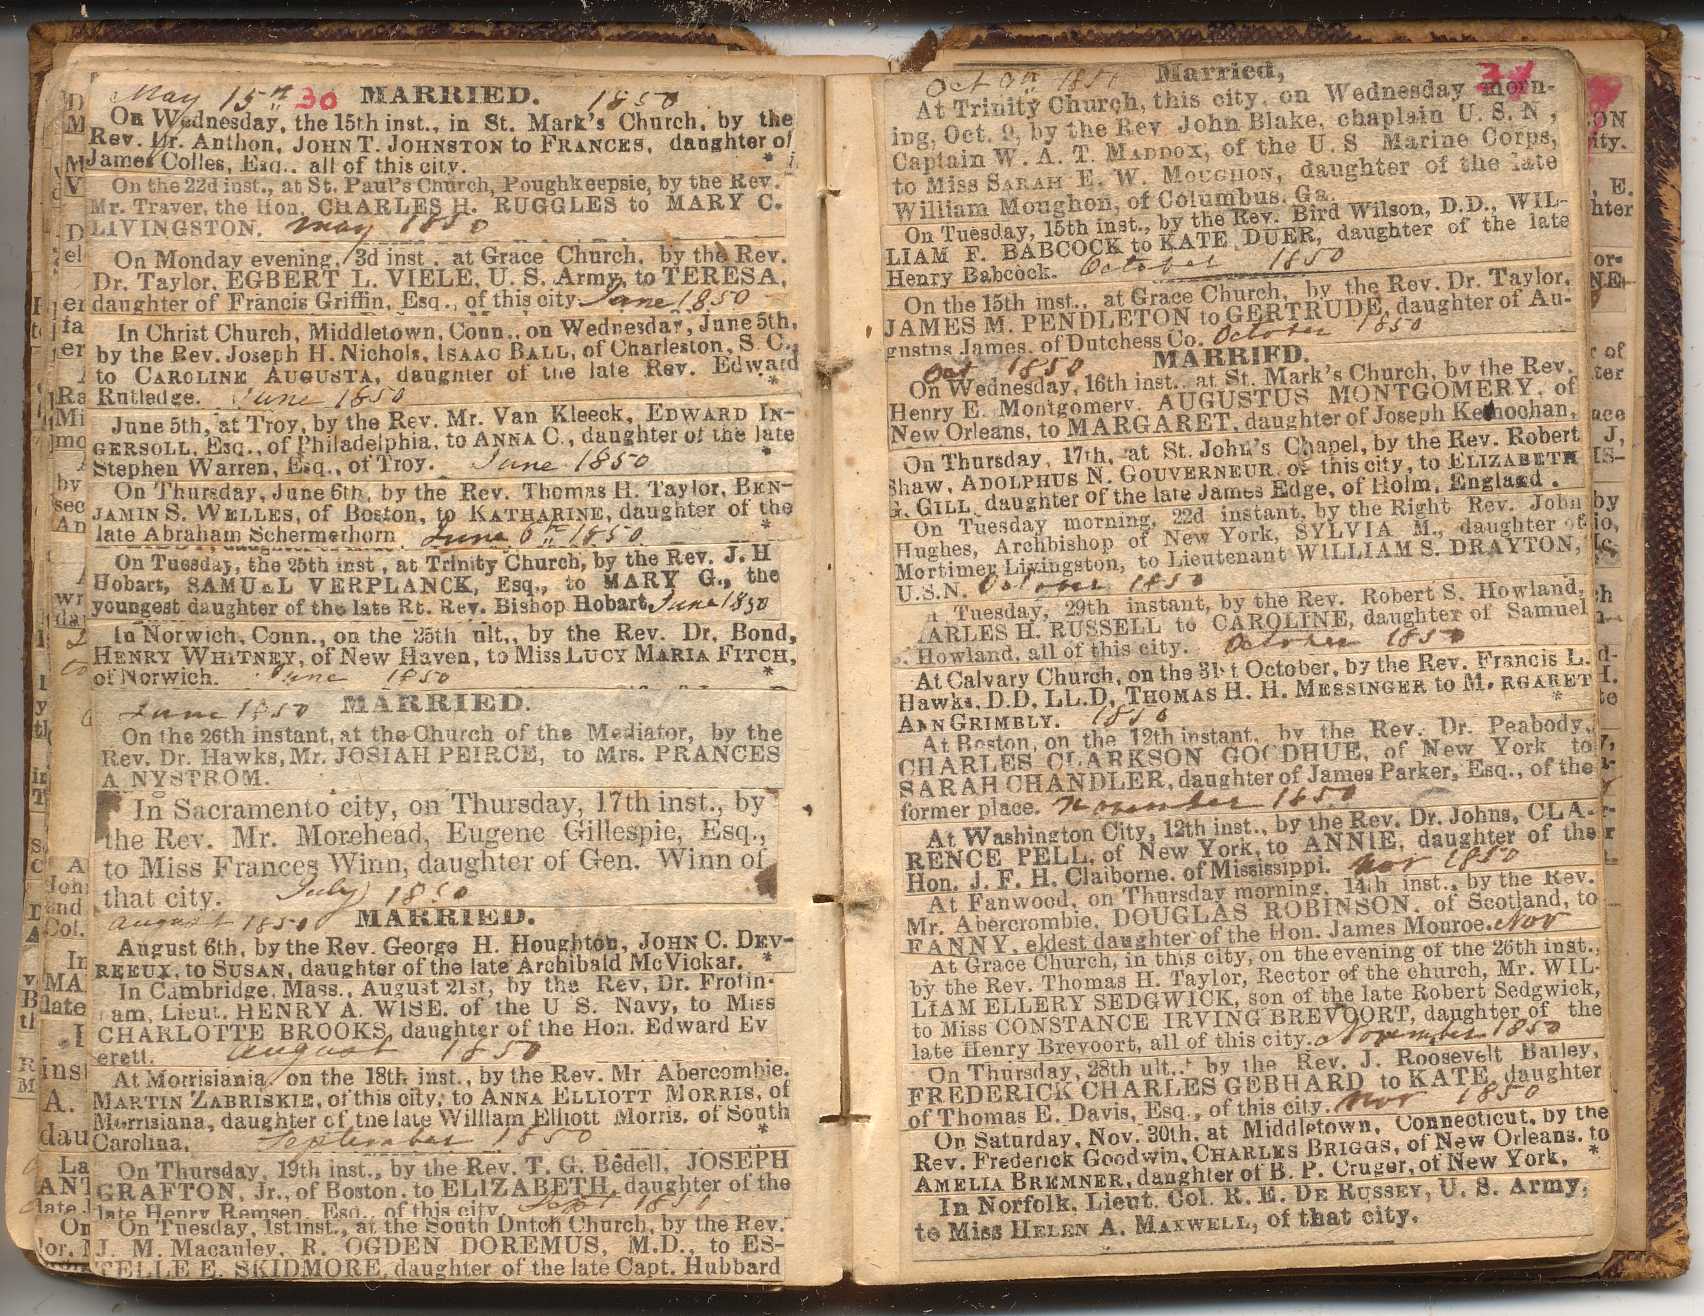 May 15th 30 MARRIED. 1850
On Wednesday, the 15th inst., in St. Mark's Church, by the
Rev. Dr. Anthon, JOHN T. JOHNSTON to FRANCES, daughter of
James Colles, Esq.. all of this city. *
On the 22d inst., at St. Paul's Church, Poughkeepsie, by the Rev.
Mr. Traver, the Hon. CHARLES H. RUGGLES to MARY C.
LIVINGSTON. May 1850
On Monday evening, 3d inst., at Grace Church, by the Rev.
Dr. Taylor, EGBERT L. VIELE, U. S. Army, to TERESA,
daughter of Francis Griffin, Esq., of this city. June 1850
In Christ Church, Middletown, Conn., on Wednesday, June 5th,
by the Rev. Joseph H. Nichols, ISAAC BALL, of Charleston, S. C.,
to CAROLINE AUGUSTA, daughter of the late Rev. Edward
Rutledge. June 1850 *
June 5th, at Troy, by the Rev. Mr. Van Kleeck, EDWARD IN-
GERSOLL, Esq., of Philadelphia, to ANNA C., daughter of the late
Stephen Warren, Esq., of Troy. June 1850 *
On Thursday, June 6th, by the Rev. Thomas H. Taylor, BEN-
JAMIN S. WELLES, of Boston, to KATHARINE, daughter of the
late Abraham Schermerhorn June 6th 1850 *
On Tuesday, the 25th inst, at Trinity Church, by the Rev. J. H
Hobart, SAMUEL VERPLANCK, Esq., to MARY G., the
youngest daughter of the late Rt. Rev. Bishop Hobart. June 1850
In Norwich, Conn., on the 25th ult., by the Rev. Dr. Bond,
HENRY WHITNEY, of New Haven, to Miss LUCY MARIA FITCH,
of Norwich. June 1850 *
June 1850 MARRIED.
On the 26th instant, at the Church of the Mediator, by the
Rev. Dr. Hawks, Mr. JOSIAH PEIRCE, to Mrs. FRANCES
A. NYSTROM.
In Sacramento city, on Thursday, 17th inst., by
the Rev. Mr. Morehead, Eugene Gillespie, Esq.,
to Miss Frances Winn, daughter of Gen. Winn of
that city. July 1850
August 1850 MARRIED.
August 6th, by the Rev. George H. Houghton, JOHN C. DEV-
REEUX, to SUSAN, daughter of the late Archibald McVickar. *
In Cambridge, Mass., August 21st, by the Rev. Dr. Frothin-
am, Lieut. HENRY A. WISE, of the U S. Navy, to Miss
CHARLOTTE BROOKS, daughter of the Hon. Edward Ev
erett. August 1850
At Morrisiania, on the 18th inst., by the Rev. Mr Abercombie.
MARTIN ZABRISKIE, of this city, to ANNA ELLIOTT MORRIS, of
Morrisiana, daughter of the late William Elliott Morris, of South
Carolina, September 1850 *
On Thursday, 19th inst., by the Rev. T. G. Bedell, JOSEPH
GRAFTON, Jr., of Boston, to ELIZABETH, daughter of the
late Henry Remsen, Esq., of this city. Sept 1850
On Tuesday, 1st inst., at the South Dutch Church, by the Rev.
J. M. Macauley, R. OGDEN DOREMUS, M.D., to ES-
TELLE E. SKIDMORE, daughter of the late Capt. Hubbard
Oct 9th 1850 Married, 31
At Trinity Church, this city, on Wednesday morn-
ing, Oct. 9, by the Rev John Blake, chaplain U. S. N,
Captain W. A. T. MADDOX, of the U. S Marine Corps,
to Miss SARAH E. W. MOUGHON, daughter of the late
William Moughon, of Columbus, Ga.
On Tuesday, 15th inst., by the Rev. Bird Wilson, D.D., WIL-
LIAM F. BABCOCK to KATE DUER, daughter of the late
Henry Babcock. October 1850
On the 15th inst., at Grace Church, by the Rev. Dr. Taylor,
JAMES M. PENDLETON to GERTRUDE, daughter of Au-
gustus James, of Dutchess Co. October 1850
Oct 1850 MARRIED.
On Wednesday, 16th inst., at St. Mark's Church, by the Rev.
Henry E. Montgomery, AUGUSTUS MONTGOMERY, of
New Orleans, to MARGARET, daughter of Joseph Kernochan.
On Thursday, 17th, at St. John's Chapel, by the Rev. Robert
Shaw, ADOLPHUS N. GOUVERNEUR, of this city, to ELIZABETH
G. GILL, daughter of the late James Edge, of Holm, England.
On Tuesday morning, 22d instant, by the Right Rev. John
Hughes, Archbishop of New York, SYLVIA M., daughter of
Mortimer Livingston, to Lieutenant WILLIAM S. DRAYTON,
U.S.N. October 1850
Tuesday, 29th instant, by the Rev. Robert S. Howland,
ARLES H. RUSSELL to CAROLINE, daughter of Samuel
S. Howland, all of this city. October 1850
At Calvary Church, on the 31st October, by the Rev. Francis L.
Hawks, D.D. LL.D, THOMAS H. H. MESSINGER to M. RGARET
ANN GRIMBLY. 1850 *
At Boston, on the 12th instant, by the Rev. Dr. Peabody,
CHARLES CLARKSON GOODHUE, of New York to
SARAH CHANDLER, daughter of James Parker, Esq., of the
former place. November 1850
At Washington City, 12th inst., by the Rev. Dr. Johns, CLA-
RENCE PELL, of New York, to ANNIE, daughter of the
Hon. J. F. H. Claiborne, of Mississippi. Nov 1850
At Fanwood, on Thursday morning, 14th inst., by the Rev.
Mr. Abercrombie, DOUGLAS ROBINSON, of Scotland, to
FANNY, eldest daughter of the Hon. James Monroe. Nov
At Grace Church, in this city, on the evening of the 26th inst.,
by the Rev. Thomas H. Taylor, Rector of the church, Mr. WIL-
LIAM ELLERY SEDGWICK, son of the late Robert Sedgwick,
to Miss CONSTANCE IRVING BREVOORT, daughter of the
late Henry Brevoort, all of this city. November 1850
On Thursday, 28th ult., by the Rev. J. Roosevelt Bailey,
FREDERICK CHARLES GEBHARD to KATE, daughter
of Thomas E. Davis, Esq., of this city. Nov 1850
On Saturday, Nov. 30th, at Middletown, Connecticut, by the
Rev. Frederick Goodwin, CHARLES BRIGGS, of New Orleans, to
AMELIA BREMNER, daughter of B. P. Cruger, of New York. *
In Norfolk, Lieut. Col. R. E. DE RUSSEY, U. S. Army,
to Miss HELEN A. MAXWELL, of that city.